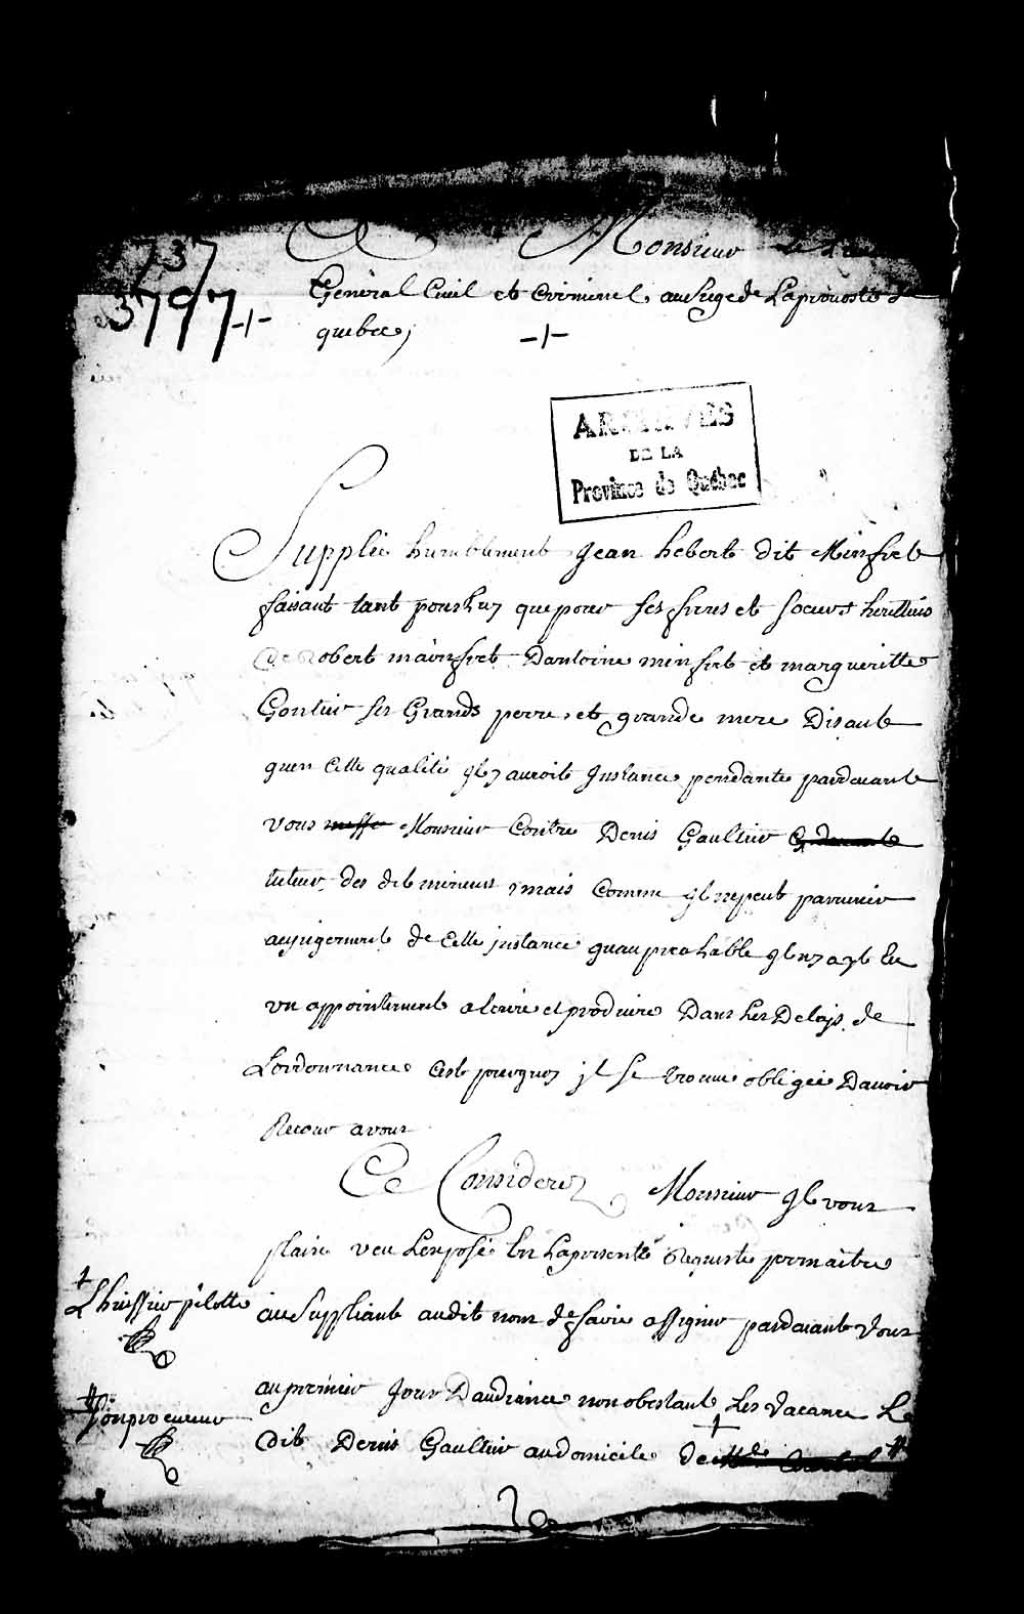 A Monsieur
737
3797
General Civil et Criminel au siege de La prevosté de
quebec;
ARCHIVES
DE LA
Province de Québec
Supplie humblement Jean hebert dit Minfret
faisant tant pour luy que pour ses freres et soeurs heritiers
de Robert mainfret Dantoine minfret et margueritte
Gontier ses Grands perre et grande mere Disant
quen Cette qualité yl y auroit Instance pendante pardevant
vous Monsieur Contre Denis Gaultier
tuteur des dit mineurs mais Comme yl ne peut parvenir
au jugement de Cette instance quau prealable yl ny ayt Eu
vn appointement a lecrire et produire Dans Les Delays de
Lordonnance Cest pourquoy jl se trouve obligée Davoir
Recour a vous
Ce Consideré Monsieur yl vous
plaire veu Lexposé En La presente Requeste permaitre
au Suppliant audit nom de faire assigner pardavant vous
L huissier pilotte
au premier Jour Daudiance nonobestant Les vacance Le
son procureur
dit Denis Gaultier au domicile de